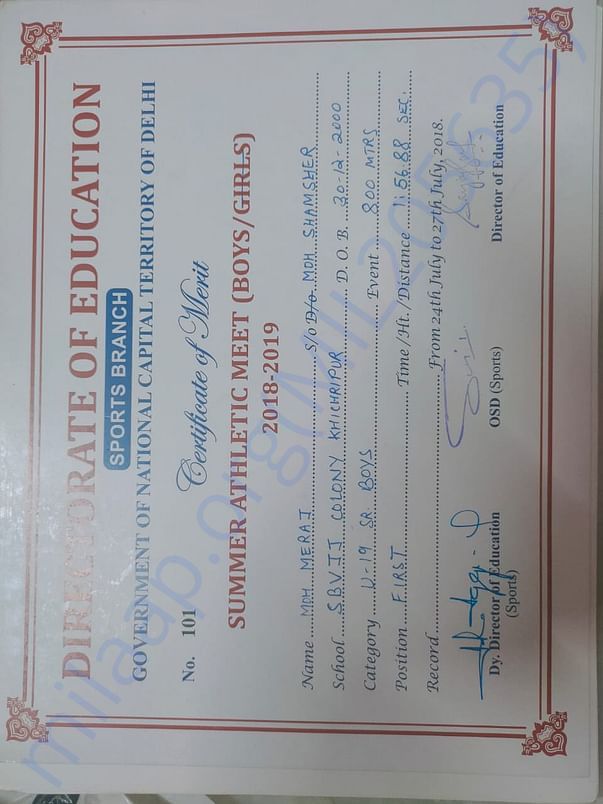 DIRECTORATE OF EDUCATION
SPORTS BRANCH
GOVERNMENT OF NATIONAL CAPITAL TERRITORY OF DELHI
No. 101
Certificate of Merit
SUMMER ATHLETIC MEET (BOYS/GIRLS)
2018-2019
Name MOH MERAJ S/o D/o MOH SHAMSHER
School SBVIJ COLONY KHICHRIPUR D. O. B. 30-12-2000
Category U-19 SR BOYS Event 800 MTRS
Position FIRST Time/Ht./Distance 1:56.88 SEC.
Record From 24th July to 27th July, 2018.
Dy. Director of Education
(Sports)
OSD (Sports)
Director of Education
milaap.org(MIL205635)